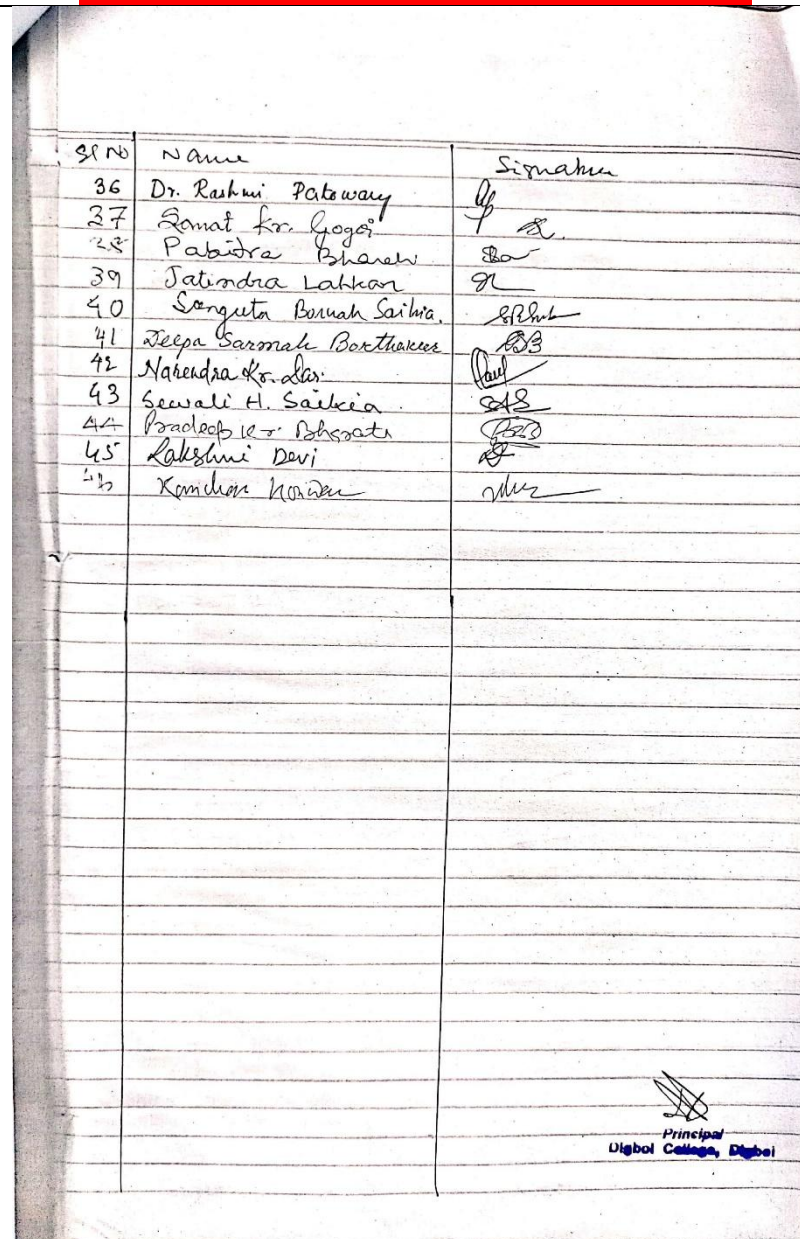 Sl No Name Signature
36 Dr. Rashmi Patowary
37 Somat Kr. Gogoi
38 Pabitra Bharali
39 Jatindra Lahkar
40 Sanguta Boruah Saikia.
41 Deepa Sarmah Borthakur
42 Narendra Kr. Das.
43 Sewali H. Saikia
44 Pradeep Kr. Bharati
45 Lakshmi Devi
46
Principal
Digboi College, Digboi